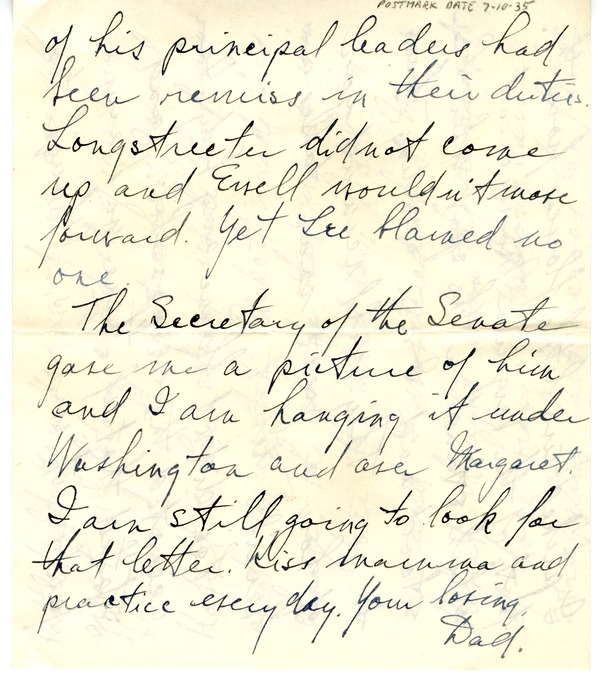 POSTMARK DATE 7-10-35
of his principal leaders had
been remiss in their duties.
Longstreeter did not come
up and Ewell wouldn't move
forward. Yet Lee blamed no
one.
The Secretary of the Senate
gave me a picture of him
and I am hanging it under
Washington and over Margaret.
I am still going to look for
that letter. Kiss mamma and
practice every day. Your loving,
Dad.